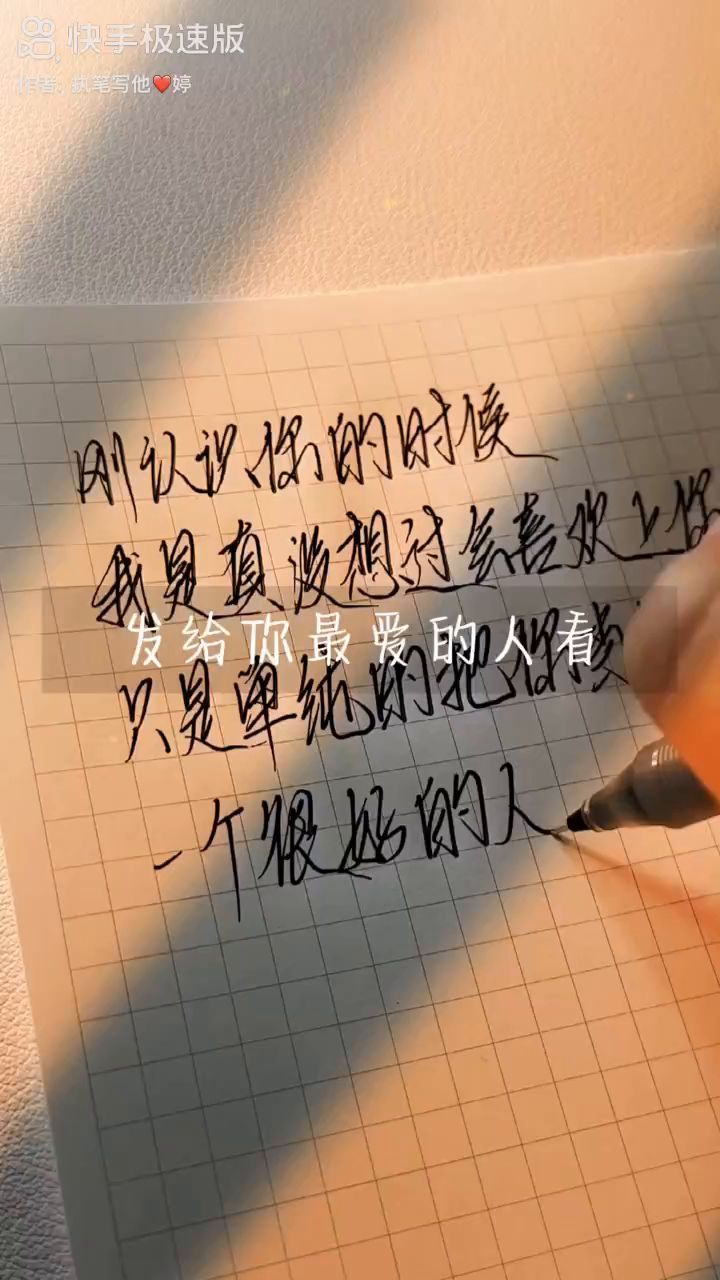 快手极速版
作者: 执笔写他❤️婷
刚认识你的时候
我是真没想过会喜欢上你
发给你最爱的人看
只是单纯的把你
一个很好的人